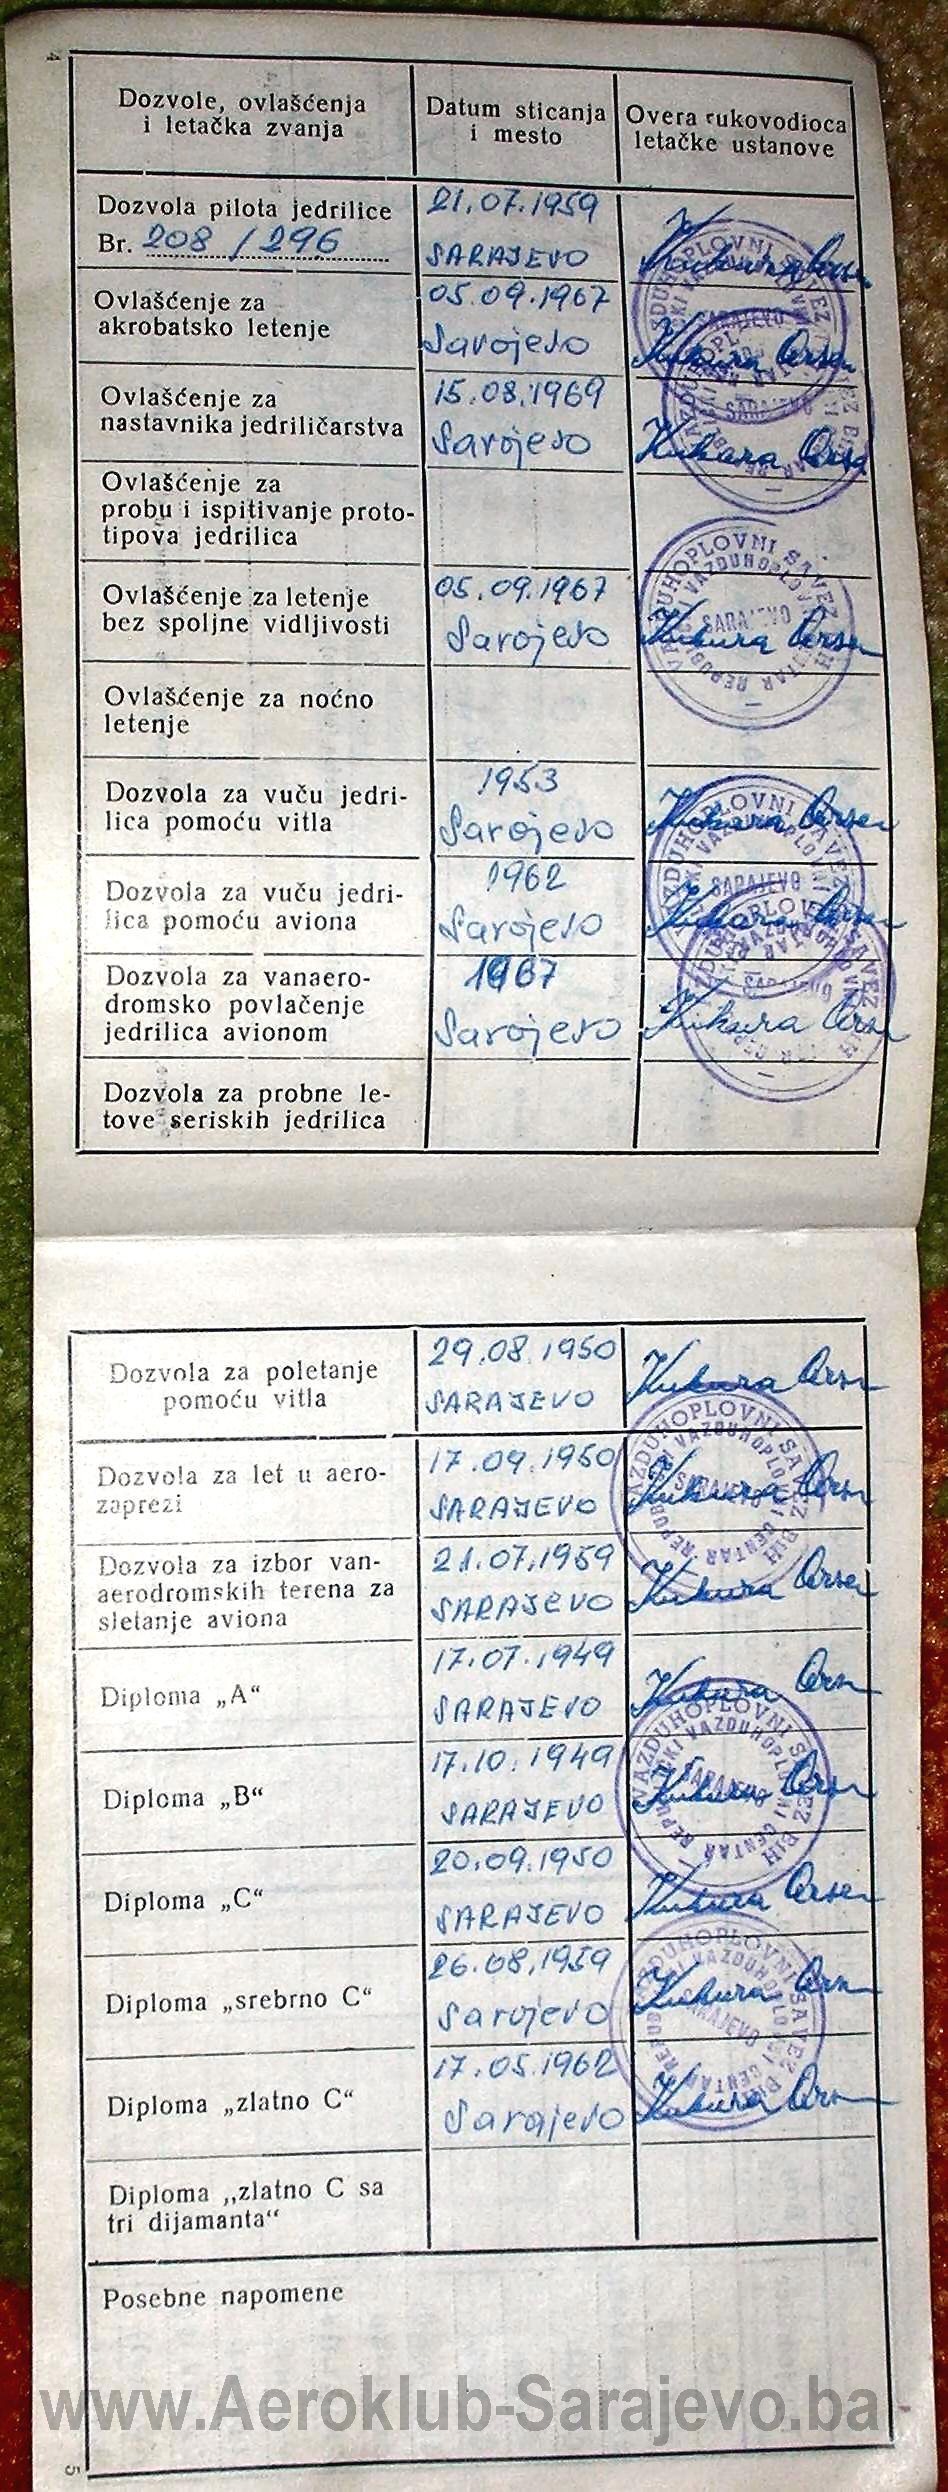 4
Dozvole, ovlašćenja
i letačka zvanja
Datum sticanja
i mesto
Overa rukovodioca
letačke ustanove
Dozvola pilota jedrilice
Br. 208/296
21.07.1959
SARAJEVO
Kukura Arsen
Ovlašćenje za
akrobatsko letenje
05.09.1967
Sarajevo
Kukura Arsen
Ovlašćenje za
nastavnika jedriličarstva
15.08.1969
Sarajevo
Kukura Arsen
Ovlašćenje za
probu i ispitivanje proto-
tipova jedrilica
Ovlašćenje za letenje
bez spoljne vidljivosti
05.09.1967
Sarajevo
Kukura Arsen
VAZDUHOPLOVNI SAVEZ BIH
REPUBLIČKI VAZDUHOPLOVNI CENTAR
SARAJEVO
Ovlašćenje za noćno
letenje
Dozvola za vuču jedri-
lica pomoću vitla
1953
Sarajevo
Kukura Arsen
Dozvola za vuču jedri-
lica pomoću aviona
1962
Sarajevo
Kukura Arsen
Dozvola za vanaero-
dromsko povlačenje
jedrilica avionom
1967
Sarajevo
Kukura Arsen
Dozvola za probne le-
tove seriskih jedrilica
Dozvola za poletanje
pomoću vitla
29.08.1950
SARAJEVO
Kukura Arsen
Dozvola za let u aero-
zaprezi
17.09.1950
SARAJEVO
Kukura Arsen
VAZDUHOPLOVNI SAVEZ BIH
REPUBLIČKI VAZDUHOPLOVNI CENTAR
SARAJEVO
Dozvola za izbor van-
aerodromskih terena za
sletanje aviona
21.07.1959
SARAJEVO
Kukura Arsen
Diploma „A“
17.07.1949
SARAJEVO
Kukura Arsen
Diploma „B“
17.10.1949
SARAJEVO
Kukura Arsen
VAZDUHOPLOVNI SAVEZ BIH
REPUBLIČKI VAZDUHOPLOVNI CENTAR
SARAJEVO
Diploma „C“
20.09.1950
SARAJEVO
Kukura Arsen
Diploma „srebrno C“
26.08.1959
Sarajevo
Kukura Arsen
VAZDUHOPLOVNI SAVEZ BIH
REPUBLIČKI VAZDUHOPLOVNI CENTAR
SARAJEVO
Diploma „zlatno C“
17.05.1962
Sarajevo
Kukura Arsen
Diploma „zlatno C sa
tri dijamanta“
Posebne napomene
www.Aeroklub-Sarajevo.ba
5